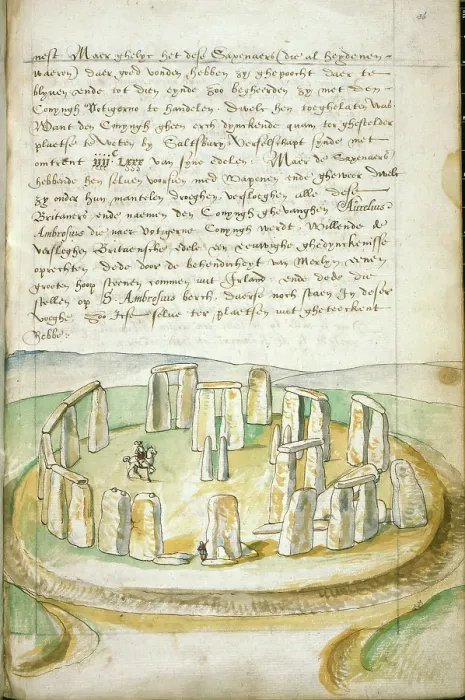 nest. Maer ghelyc het dese Saxenaers (die al heydenen
waeren) daer goed vonden hebben zy ghepoocht daer te
blyven ende tot dien eynde zoo begheerden zy met den
Conyngh Votigerno te handelen. Dwelc hen toeghelaten was.
Want den Conyngh gheen erch dynckende quam ter ghestelder
plaetse te weten by Saltsbury verselschapt synde met
omtrent iiij. Lxxx van syne edelen: Maer de Saxenaers
hebbende hen selven voorsien met wapenen ende gheweer dwelc
zy onder hun mantelen droeghen versloeghen alle dese
Britaners ende naemen den Conyngh ghevanghen. Aurelius
Ambrosius die naer Votigerne Conyngh werdt. Willende de
versleghen Britaensche edele een eeuwighe ghedynckenisse
oprechten dede door de behendicheyt van Merlyn eenen
grooten hoop steenen commen uut Irland. ende dede die
stellen op S. Ambrosius berch, alwaer noch staen in deser
voeghe. Zoo ick selve ter plaetsen uut gheteeckent
hebbe.